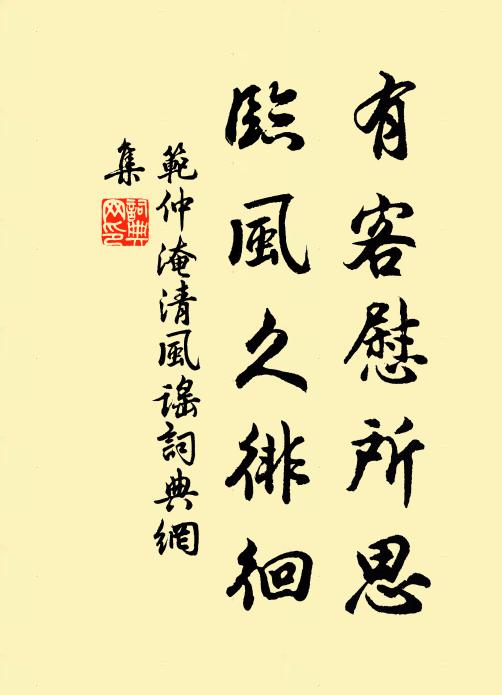 有客慰所思
臨風久徘徊
範仲淹清風謠詞典網
集
詞典網印